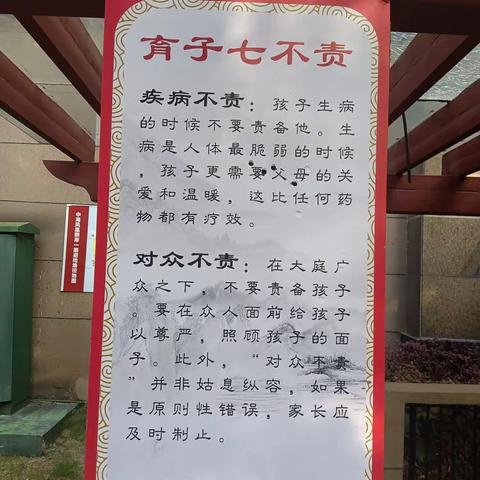 育子七不责
疾病不责：孩子生病
的时候不要责备他。生
病是人体最脆弱的时候
，孩子更需要父母的关
爱和温暖，这比任何药
物都有疗效。
对众不责：在大庭广
众之下，不要责备孩子
。要在众人面前给孩子
以尊严，照顾孩子的面
子。此外，“对众不责
”并非姑息纵容，如果
是原则性错误，家长应
及时制止。